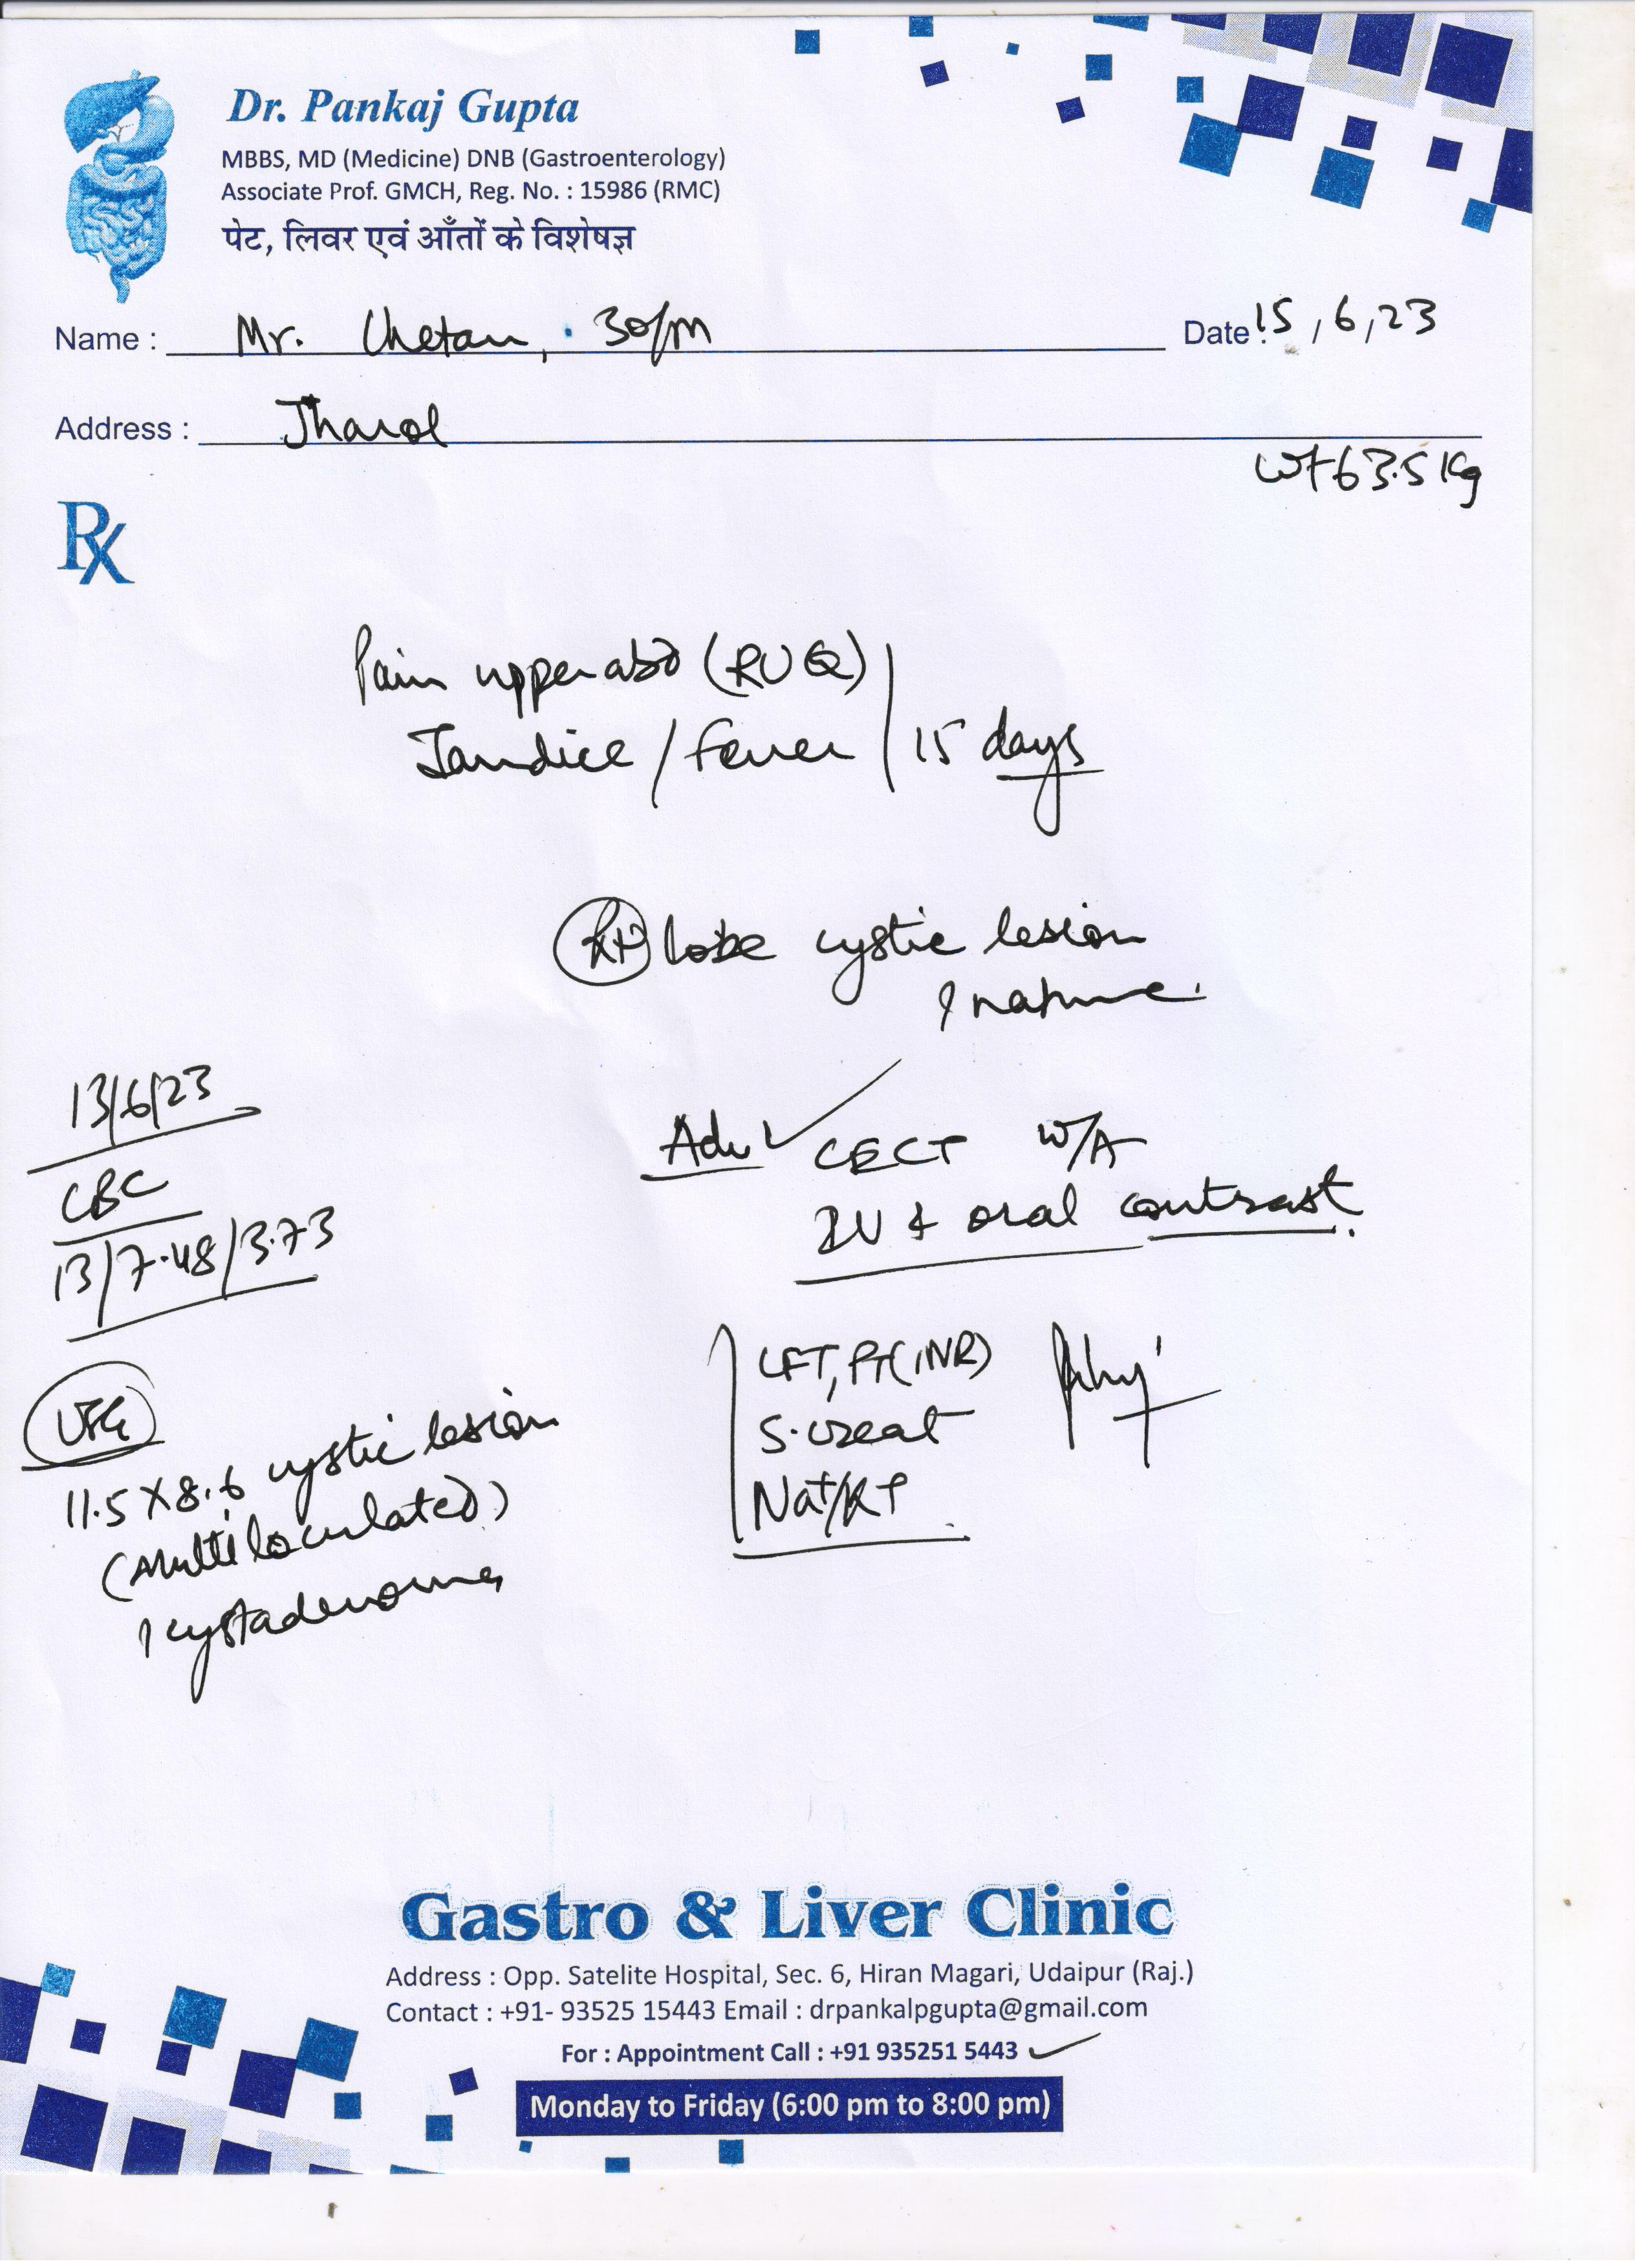 Dr. Pankaj Gupta
MBBS, MD (Medicine) DNB (Gastroenterology)
Associate Prof. GMCH, Reg. No. : 15986 (RMC)
पेट, लिवर एवं आँतों के विशेषज्ञ
Name : Mr. Chetan, 30/m Date : 15, 6, 23
Address : Jharol
Wt 63.5 Kg
Rx
Pain upper abd (RUQ)
Jaundice / Fever / 15 days
Rt lobe cystic lesion
? nature.
13/6/23
CBC
13/7.48/3.73
USG
11.5 X 8.6 cystic lesion
(multiloculated)
? cystadenoma
Adv ✓ CECT W/A
IV & oral contrast.
LFT, PT(INR)
S. creat
Na+/K+
Gastro & Liver Clinic
Address : Opp. Satelite Hospital, Sec. 6, Hiran Magari, Udaipur (Raj.)
Contact : +91- 93525 15443 Email : drpankalpgupta@gmail.com
For : Appointment Call : +91 935251 5443
Monday to Friday (6:00 pm to 8:00 pm)